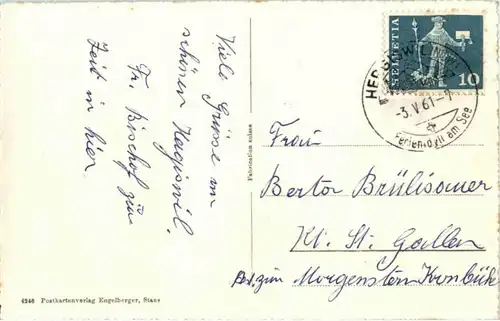 Viele Grüsse im
schönen Hagiswil.
Fr. Bischof zur
Zeit in hier.
HELVETIA
10
HERGISWIL
-3.V.61-
Ferien-Idyll am See
Fabrication suisse
Frau
Berta Brülisauer
Kt. St. Gallen
Morgenstern Kronbühl
6246 Postkartenverlag Engelberger, Stans